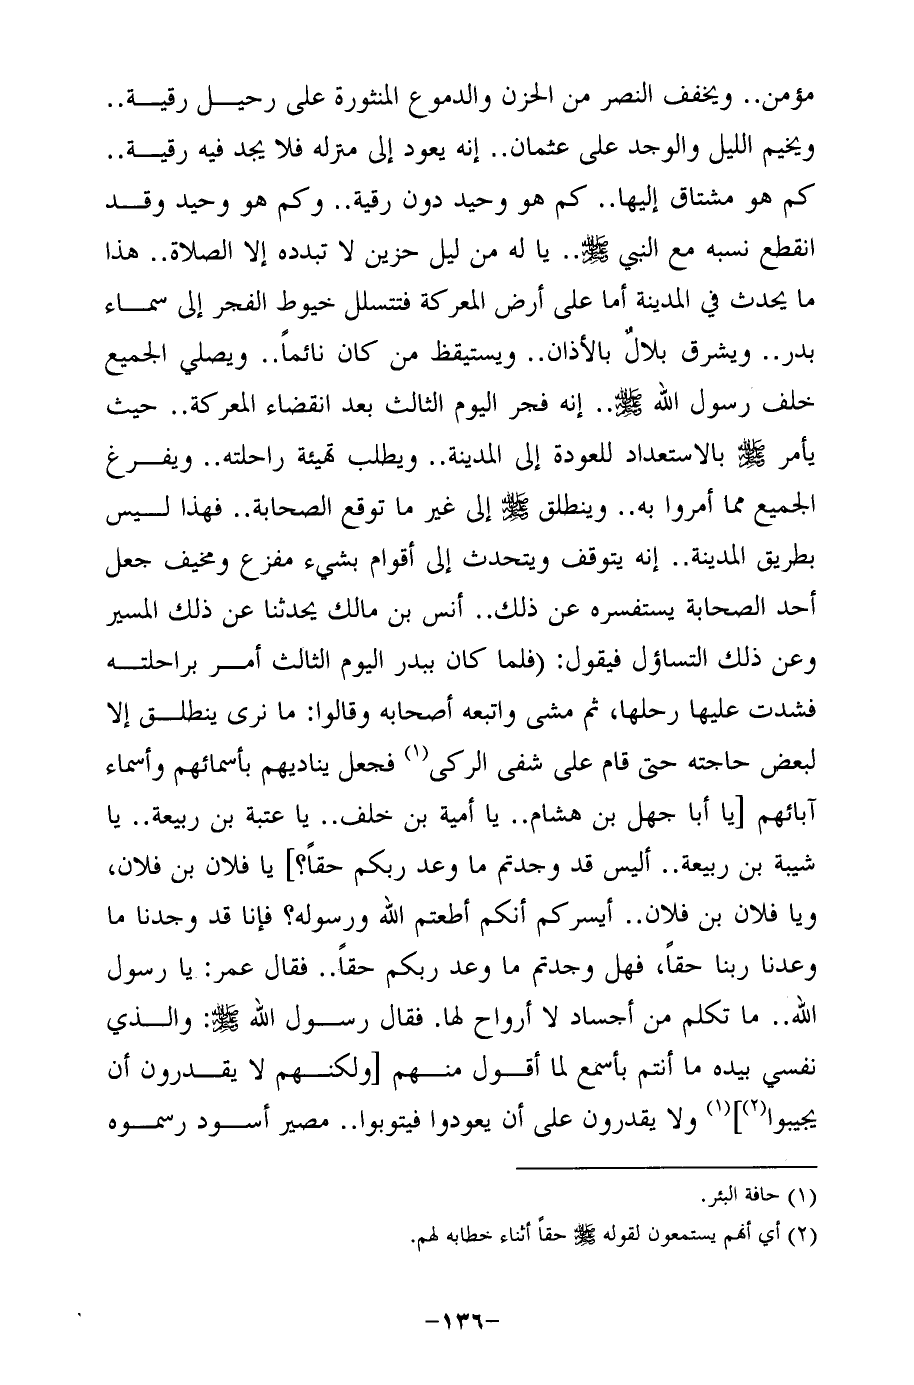 مؤمن.. ويخفف النصر من الحزن والدموع المنثورة على رحيـل رقيـة..
ويخيم الليل والوجد على عثمان.. إنه يعود إلى منزله فلا يجد فيه رقيـة..
كم هو مشتاق إليها.. كم هو وحيد دون رقية.. وكم هو وحيد وقـد
انقطع نسبه مع النبي ﷺ.. يا له من ليل حزين لا تبدده إلا الصلاة.. هذا
ما يحدث في المدينة أما على أرض المعركة فتتسلل خيوط الفجر إلى سمـاء
بدر.. ويشرق بلالٌ بالأذان.. ويستيقظ من كان نائماً.. ويصلي الجميع
خلف رسول الله ﷺ.. إنه فجر اليوم الثالث بعد انقضاء المعركة.. حيث
يأمر ﷺ بالاستعداد للعودة إلى المدينة.. ويطلب تهيئة راحلته.. ويفـرغ
الجميع مما أمروا به.. وينطلق ﷺ إلى غير ما توقع الصحابة.. فهذا لـيس
بطريق المدينة.. إنه يتوقف ويتحدث إلى أقوام بشيء مفزع ومخيف جعل
أحد الصحابة يستفسره عن ذلك.. أنس بن مالك يحدثنا عن ذلك المسير
وعن ذلك التساؤل فيقول: (فلما كان ببدر اليوم الثالث أمـر براحلتـه
فشدت عليها رحلها، ثم مشى واتبعه أصحابه وقالوا: ما نرى ينطلـق إلا
لبعض حاجته حتى قام على شفى الركى(١) فجعل يناديهم بأسمائهم وأسماء
آبائهم [يا أبا جهل بن هشام.. يا أمية بن خلف.. يا عتبة بن ربيعة.. يا
شيبة بن ربيعة.. أليس قد وجدتم ما وعد ربكم حقاً؟] يا فلان بن فلان،
ويا فلان بن فلان.. أيسركم أنكم أطعتم الله ورسوله؟ فإنا قد وجدنا ما
وعدنا ربنا حقاً، فهل وجدتم ما وعد ربكم حقاً.. فقال عمر: يا رسول
الله.. ما تكلم من أجساد لا أرواح لها. فقال رسـول الله ﷺ: والـذي
نفسي بيده ما أنتم بأسمع لما أقـول منـهم [ولكنـهم لا يقـدرون أن
يجيبوا(٢)](١) ولا يقدرون على أن يعودوا فيتوبوا.. مصير أسـود رسمـوه
(١) حافة البئر.
(٢) أي أنهم يستمعون لقوله ﷺ حقاً أثناء خطابه لهم.
-١٣٦-